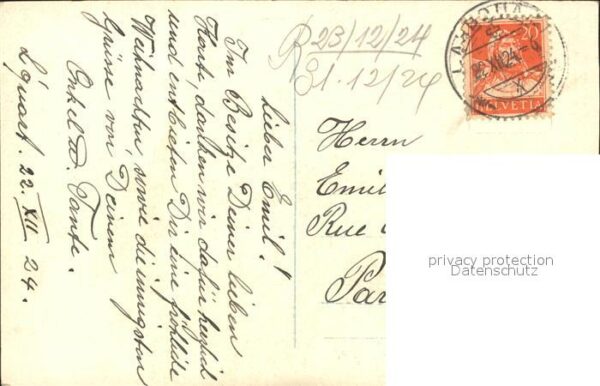 Lieber Emil!
Im Besitze Deiner lieben
Karte, danken wir dafür herzlich
und entbieten Dir eine fröhliche
Weihnachten sowie die innigsten
Grüsse von Deinem
Onkel u. Tante.
22. XII 24.
R 23/12/24
31.12/24
20
HELVETIA
Herrn
Emil
Rue
Par
privacy protection
Datenschutz